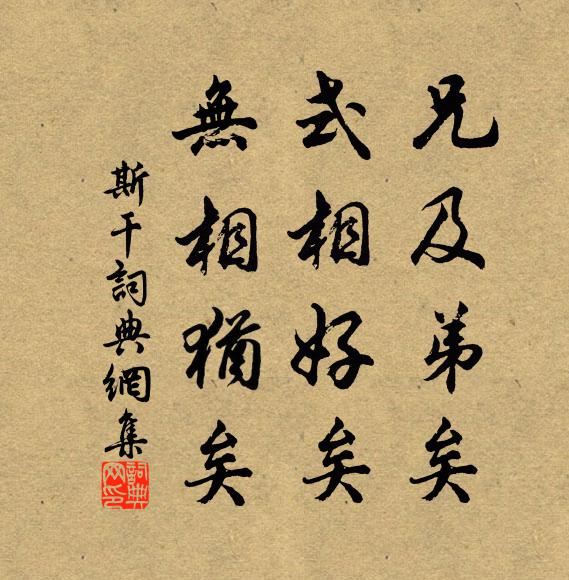 兄及弟矣
式相好矣
無相猶矣
斯干詞典網集
詞典网印